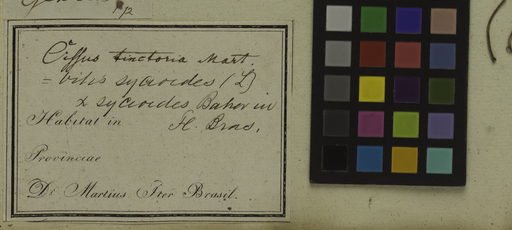 Cissus tinctoria Mart.
= vitis sycioides (L)
α sycioides Baker in
Habitat in Fl. Bras.
Provinciae
Dr. Martius Iter Brasil.